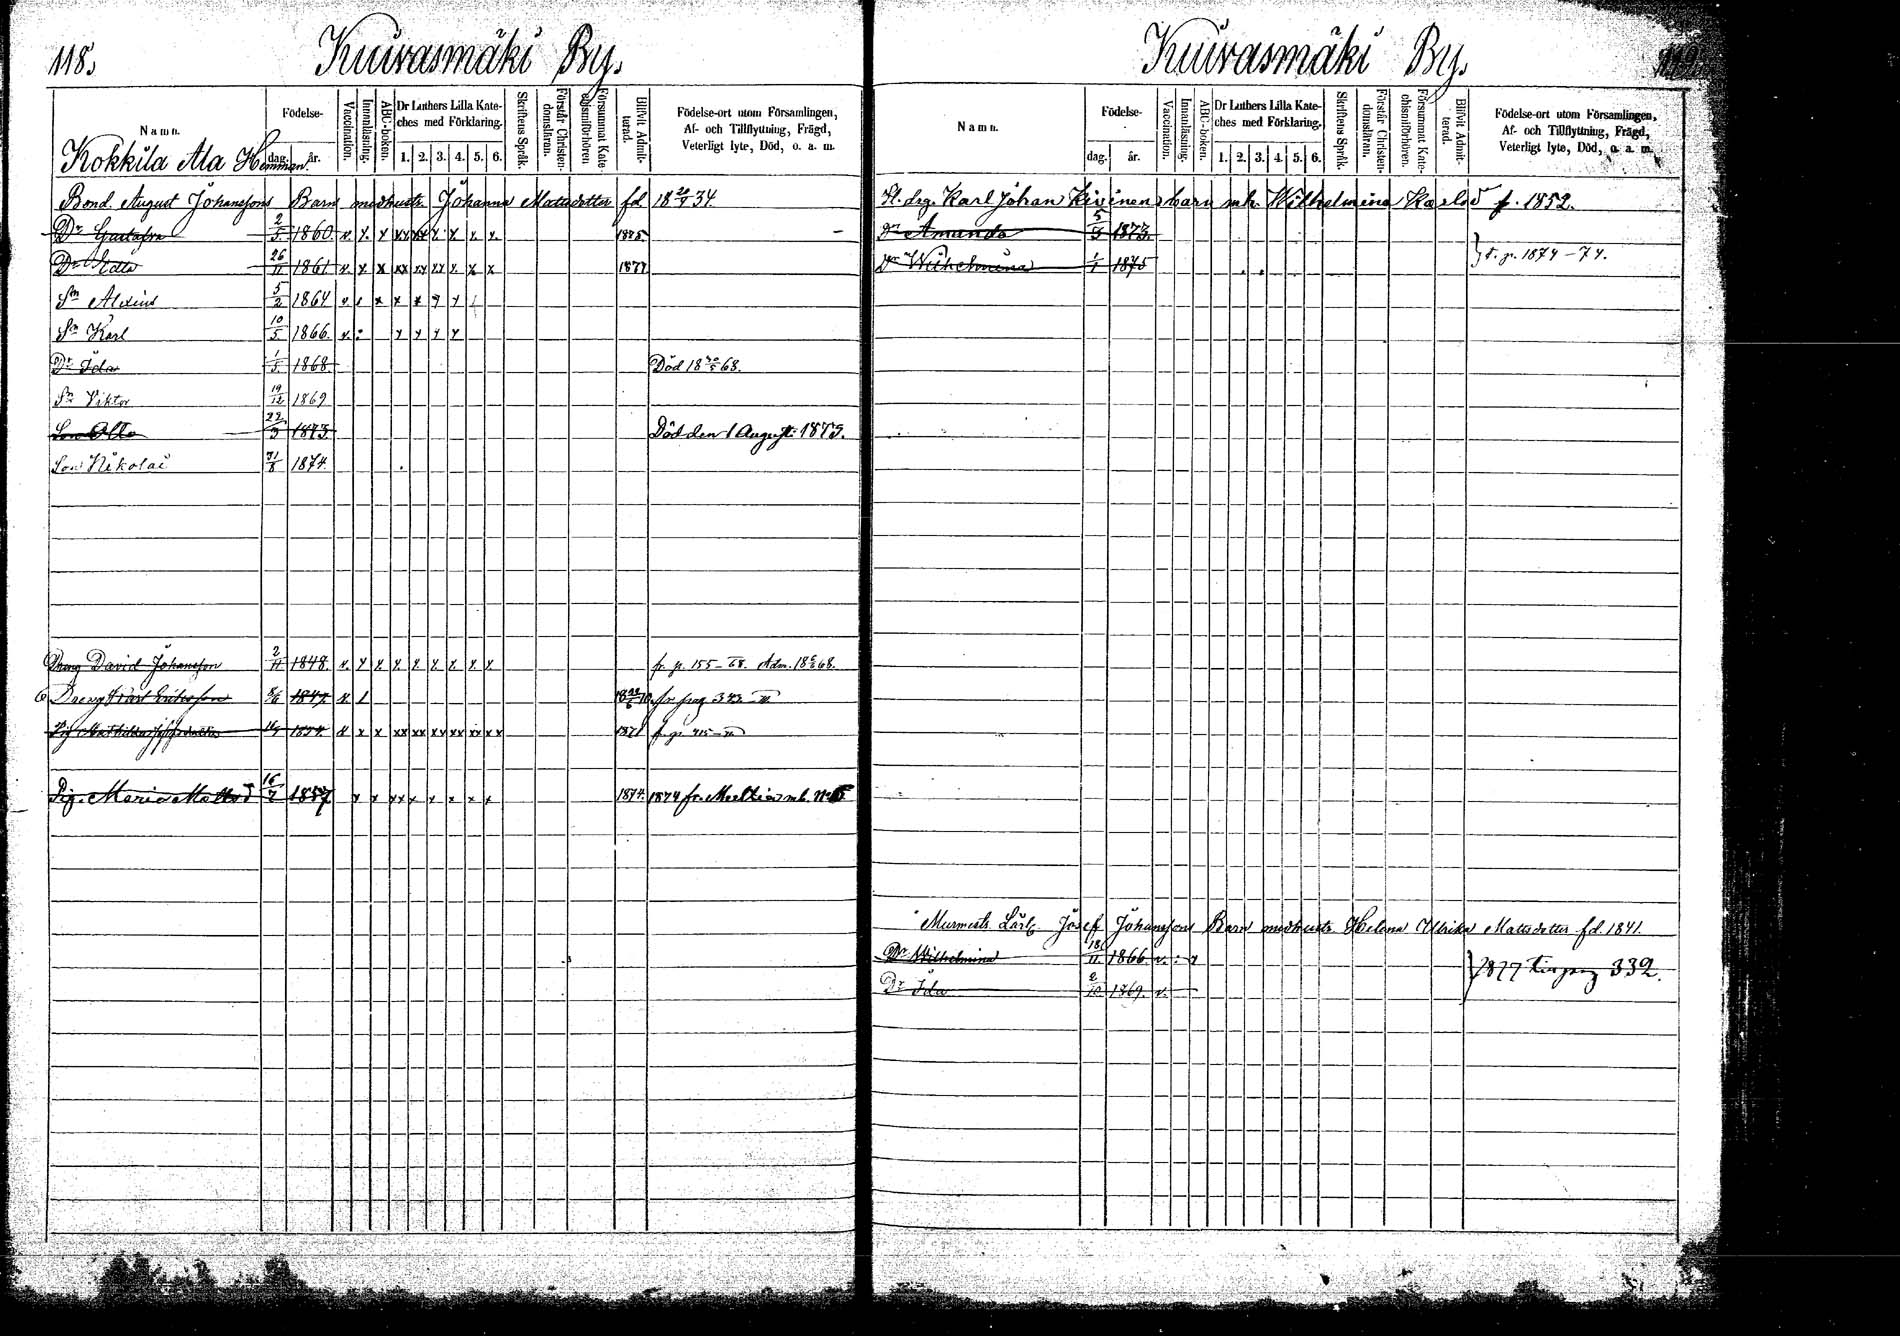 118.
Kuivasmäki By.
Namn.
Födelse-
dag. år.
Vaccination.
Innanläsning.
ABC-boken.
Dr Luthers Lilla Kate-
ches med Förklaring.
1. 2. 3. 4. 5. 6.
Skriftens Språk.
Förstår Christen-
domsläran.
Försummat Kate-
chismiförhören.
Blifvit Admit-
terad.
Födelse-ort utom Församlingen,
Af- och Tillflyttning, Frägd,
Veterligt lyte, Död, o. a. m.
Kokkila Ala Hemman.
Bond. August Johanssons Barn med hustr. Johanna Mattsdotter fd 34.
Dr Gustafva 2/5 1860. v. x x xx xx x x x x 1875.
Dr Edla 26/11 1861 v. x x xx xx xx x x x 1877
Sn Alexius 5/2 1864
Sn Karl 10/5 1866. v. x x x x
Dr Ida 1/5 1868 Död 18 30/5 68.
Sn Viktor 19/12 1869
Son Otto 22/3 1873. Död den 1 Augusti 1873.
Son Nikolai 31/8 1874.
Dreng David Johansson 2/11 1848. v. x x x x x x x x fr. p. 155-68. Adm. 68.
Dreng Karl Eriksson 8/6 1847. fr pag 343
Pig 1854. x x x xx xx xx xx xx xx 1871 fr. p. 415
Pig. Maria Mattsd 16/7 1857 x x xx x x x x x 1874. 1874 fr. m. b. No
Kuivasmäki By.
119.
Namn.
Födelse-
dag. år.
Vaccination.
Innanläsning.
ABC-boken.
Dr Luthers Lilla Kate-
ches med Förklaring.
1. 2. 3. 4. 5. 6.
Skriftens Språk.
Förstår Christen-
domsläran.
Försummat Kate-
chismiförhören.
Blifvit Admit-
terad.
Födelse-ort utom Församlingen,
Af- och Tillflyttning, Frägd,
Veterligt lyte, Död, o. a. m.
drg. Karl Johan Kivinens barn m.h. Wilhelmina Karlsd f. 1852.
Dr Amanda 5/3 1873.
Dr Wilhelmina 1/1 1875
p. 1874-74.
Murmests Lärl. Josef Johanssons Barn med hustr. Helena Ulrika Mattsdotter fd. 1841.
Dr Wilhelmina 18/11 1866 v. : x
Dr Ida 2/10 1869. v.
1877 pag 332.